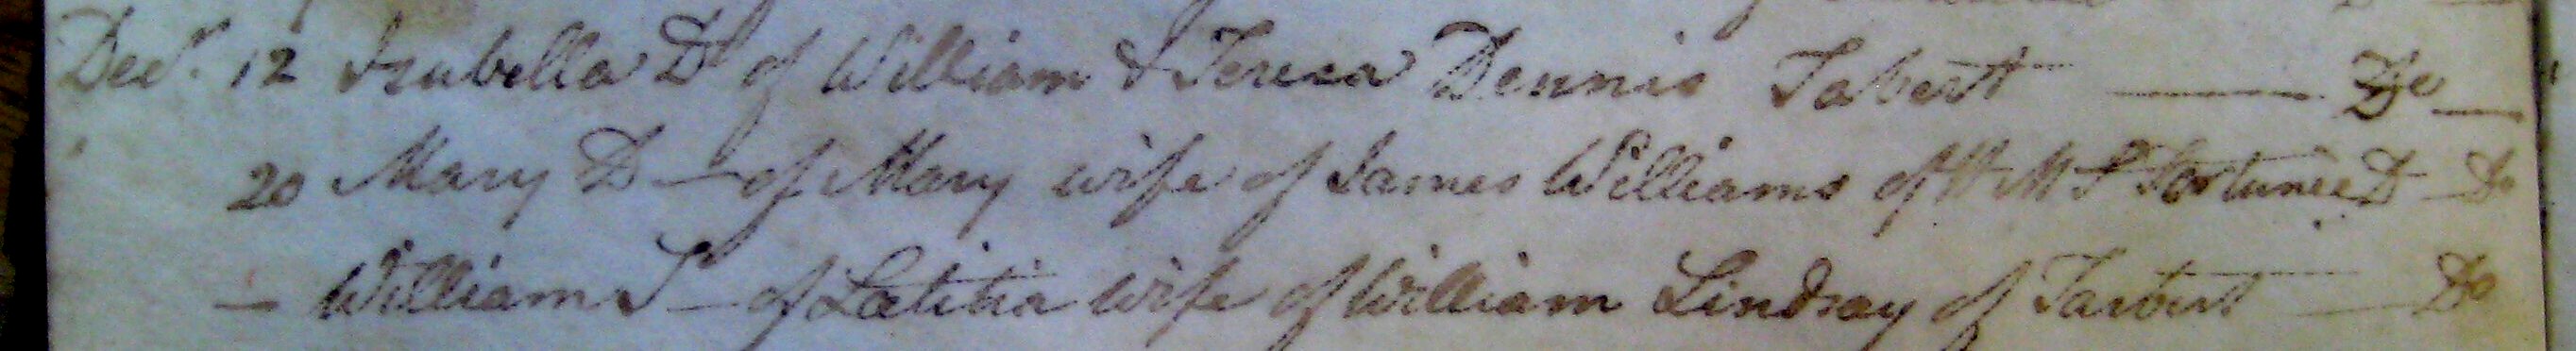 Decr. 12 Isabella Dr of William & Teresa Dennis Tabert — Do —
20 Mary D — of Mary wife of James Williams of H M S Fortunee D — Do
— William S — of Lætitia wife of William Lindsay of Tarbert — Do